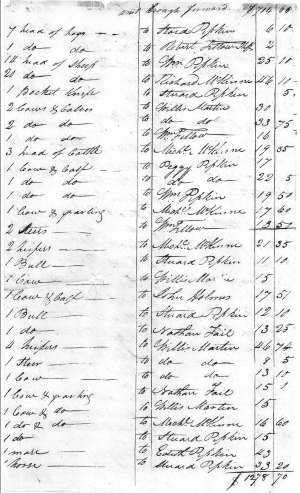 amt brought forward $710
7 head of hogs to Stuard Pipkin 6 10
1 do do to Robert Fellow 2
12 head of Sheep to Wm Pipkin 25 10
21 do do to Richard McKinne 46 10
1 Pocket Knife to Stuard Pipkin 5
2 Cows & Calves to Willis Martin 30
2 do do to do do 33 75
1 do do to Wm Fellow 16
3 head of Cattle to Michl McKinne 19 35
1 Cow & Calf to Peggy Pipkin 17
1 do do to do do 22 5
1 do do to Wm Pipkin 19 50
1 Cow & yearling to Michl McKinne 17 60
2 Steers to Wm Fellow 13 50
2 heifers to Michl McKinne 21 35
1 Bull to Stuard Pipkin 11 10
1 Cow to Willis Martin 15
1 Cow & Calf to John Holmes 17 51
1 Bull to Stuard Pipkin 12 10
1 do to Nathan Fail 13 25
4 heifers to Willis Martin 46 74
1 Steer to do do 8 5
1 Cow to do do 13 10
1 Cow & yearling to Nathan Fail 15
1 Cow & do to Willis Martin 15
1 do & do to Michl McKinne 16 60
1 do to Stuard Pipkin 15
1 mare to Edith Pipkin 43
1 horse to Stuard Pipkin 33 20
$1278 70